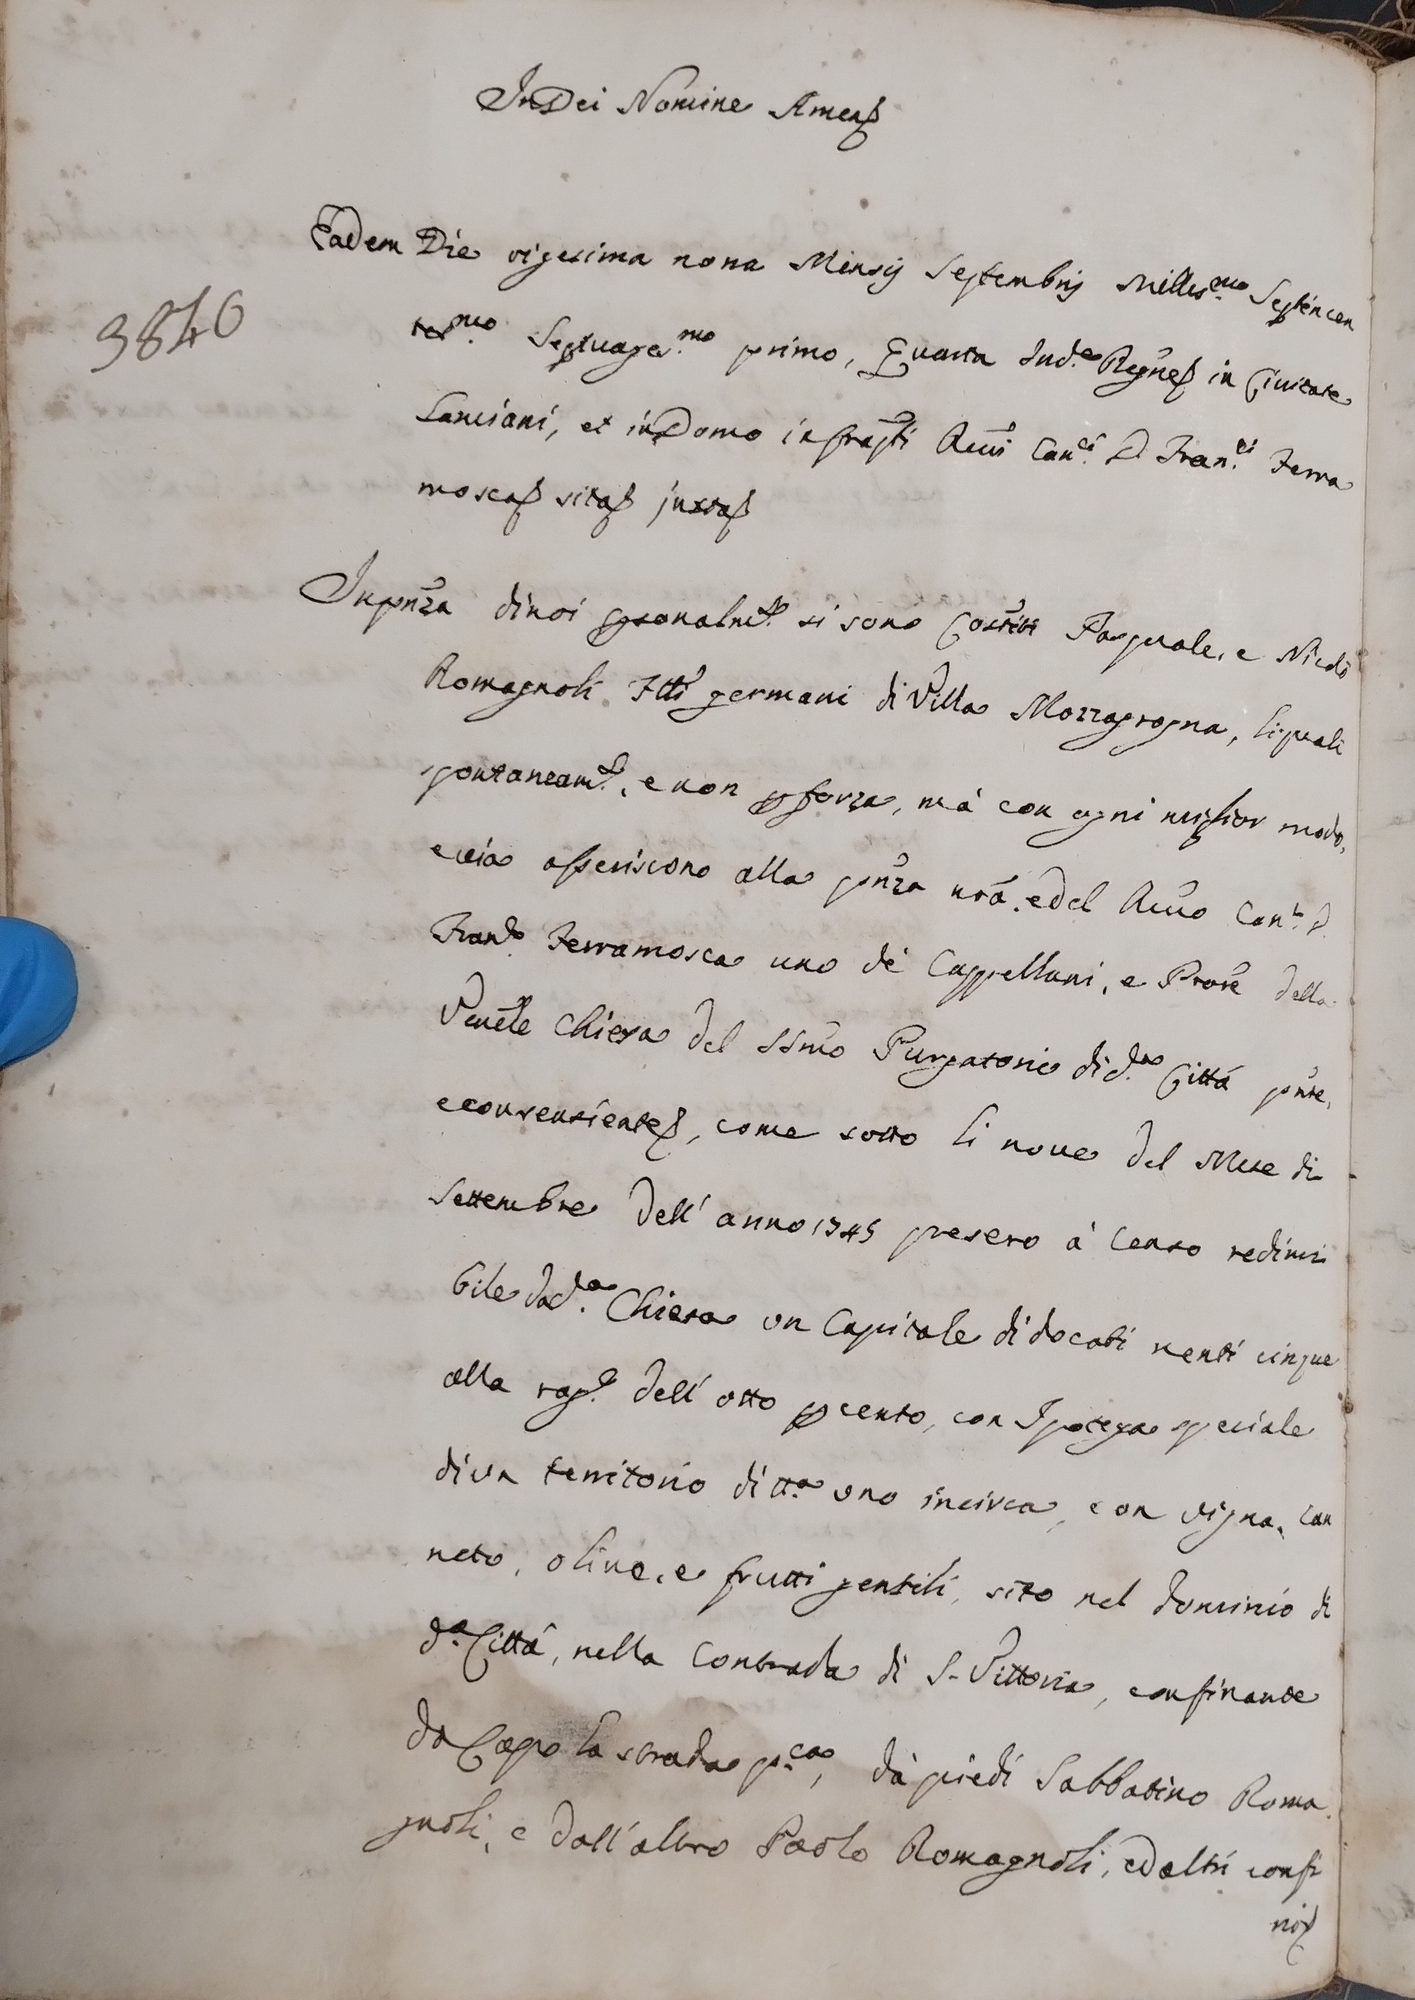 In Dei Nomine Amen
Eadem Die vigesima nona Mensis Septembris Milles.mo Septincen
tes.mo Septuages.mo primo, Quarta Ind.e Regnes in Civitate
3846
Lanciani, et in Domo infrapti Reuti Can.ci D Fran.ci Ferra
mosca sita juxta
In pnza di noi psonalm.te si sono Costiti Pasquale, e Nicolò
Romagnoli Ftti germani di Villa Mozzagrogna, li quali
spontaneam.te, e non p forza, mà con ogni miglior modo,
e via asseriscono alla pnza nrã, e del Reuo Can.co D
Fran.co Ferramosca uno de Cappellani, e Prore della
Venele Chiesa del SSmo Purgatorio di d.a Città pnte,
e consentiente, come sotto li nove del Mese di
Settembre dell' anno 1745 presero à Censo redimi
bile da d.a Chiesa un Capitale di docati venti cinque
alla rag.e dell' otto p cento, con Ipoteca speciale
di un territorio di tt.a uno incirca, con vigna, can
neto, olive, e frutti gentili, sito nel dominio di
d.a Città, nella Contrada di S. Vittoria, confinante
da Capo la strada p.ca, dà piedi Sabbatino Roma
gnoli, e dall' altro Paolo Romagnoli, ed altri confi
ni